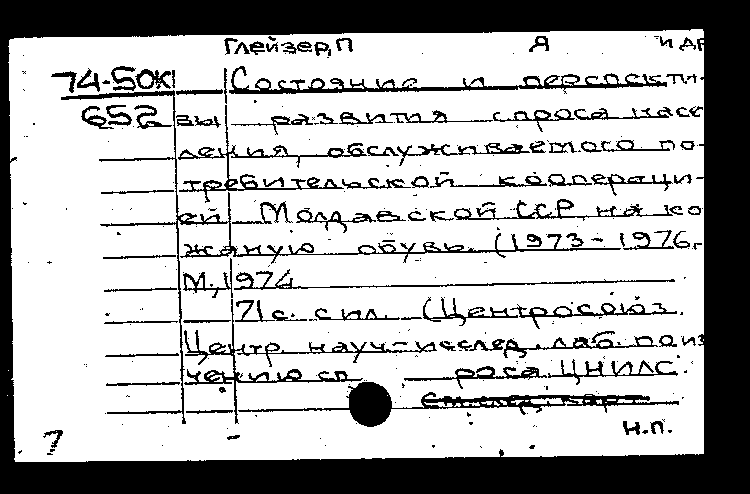 Глейзер, П Я и др
74-50К Состояние и перспекти-
652 вы развития спроса насе
ления, обслуживаемого по-
требительской коопераци-
ей Молдавской ССР, на ко
жаную обувь. (1973-1976г
М., 1974
71с. с ил. (Центросоюз.
Центр. науч-исслед. лаб. по из
чению сп роса ЦНИЛС.
См. след. карт.
7 - н.п.